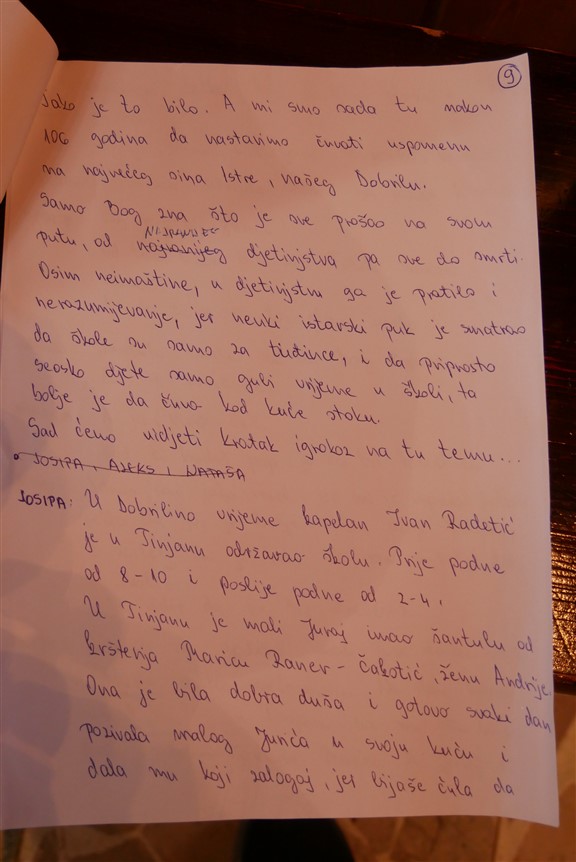 9
Jako je to bilo. A mi smo sada tu nakon
106 godina da nastavimo čuvati uspomenu
na najvećeg sina Istre, našeg Dobrilu.
Samo Bog zna što je sve prošao na svom
NIJRANIJEG
putu, od najranijeg djetinjstva pa sve do smrti.
Osim neimaštine, u djetinjstvu ga je pratilo i
nerazumijevanje, jer neuki istarski puk je smatrao
da škole su samo za tuđince, i da priprosto
seosko djete samo gubi vrijeme u školi, ta
bolje je da čuva kod kuće stoku.
Sad ćemo vidjeti kratak igrokaz na tu temu...
• JOSIPA, ALEKS I NATAŠA
JOSIPA: U Dobrilino vrijeme kapelan Ivan Radetić
je u Tinjanu održavao školu. Prije podne
od 8-10 i poslije podne od 2-4.
U Tinjanu je mali Juraj imao šantulu od
krštenja Maricu Raner - Čakotić, ženu Andrije
Ona je bila dobra duša i gotovo svaki dan
pozivala malog Jurića u svoju kuću i
dala mu koji zalogaj, jer bijaše čula da